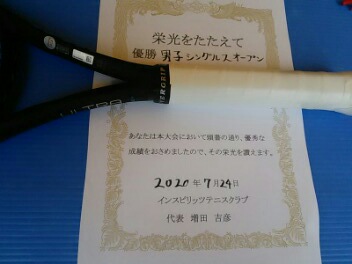 栄光をたたえて
優勝 男子シングルスオープン
ULTRA
OVERGRIP
あなたは本大会において頭書の通り、優秀な
成績をおさめましたので、その栄光を讃えます。
2020年7月24日
インスピリッツテニスクラブ
代表 増田 吉彦